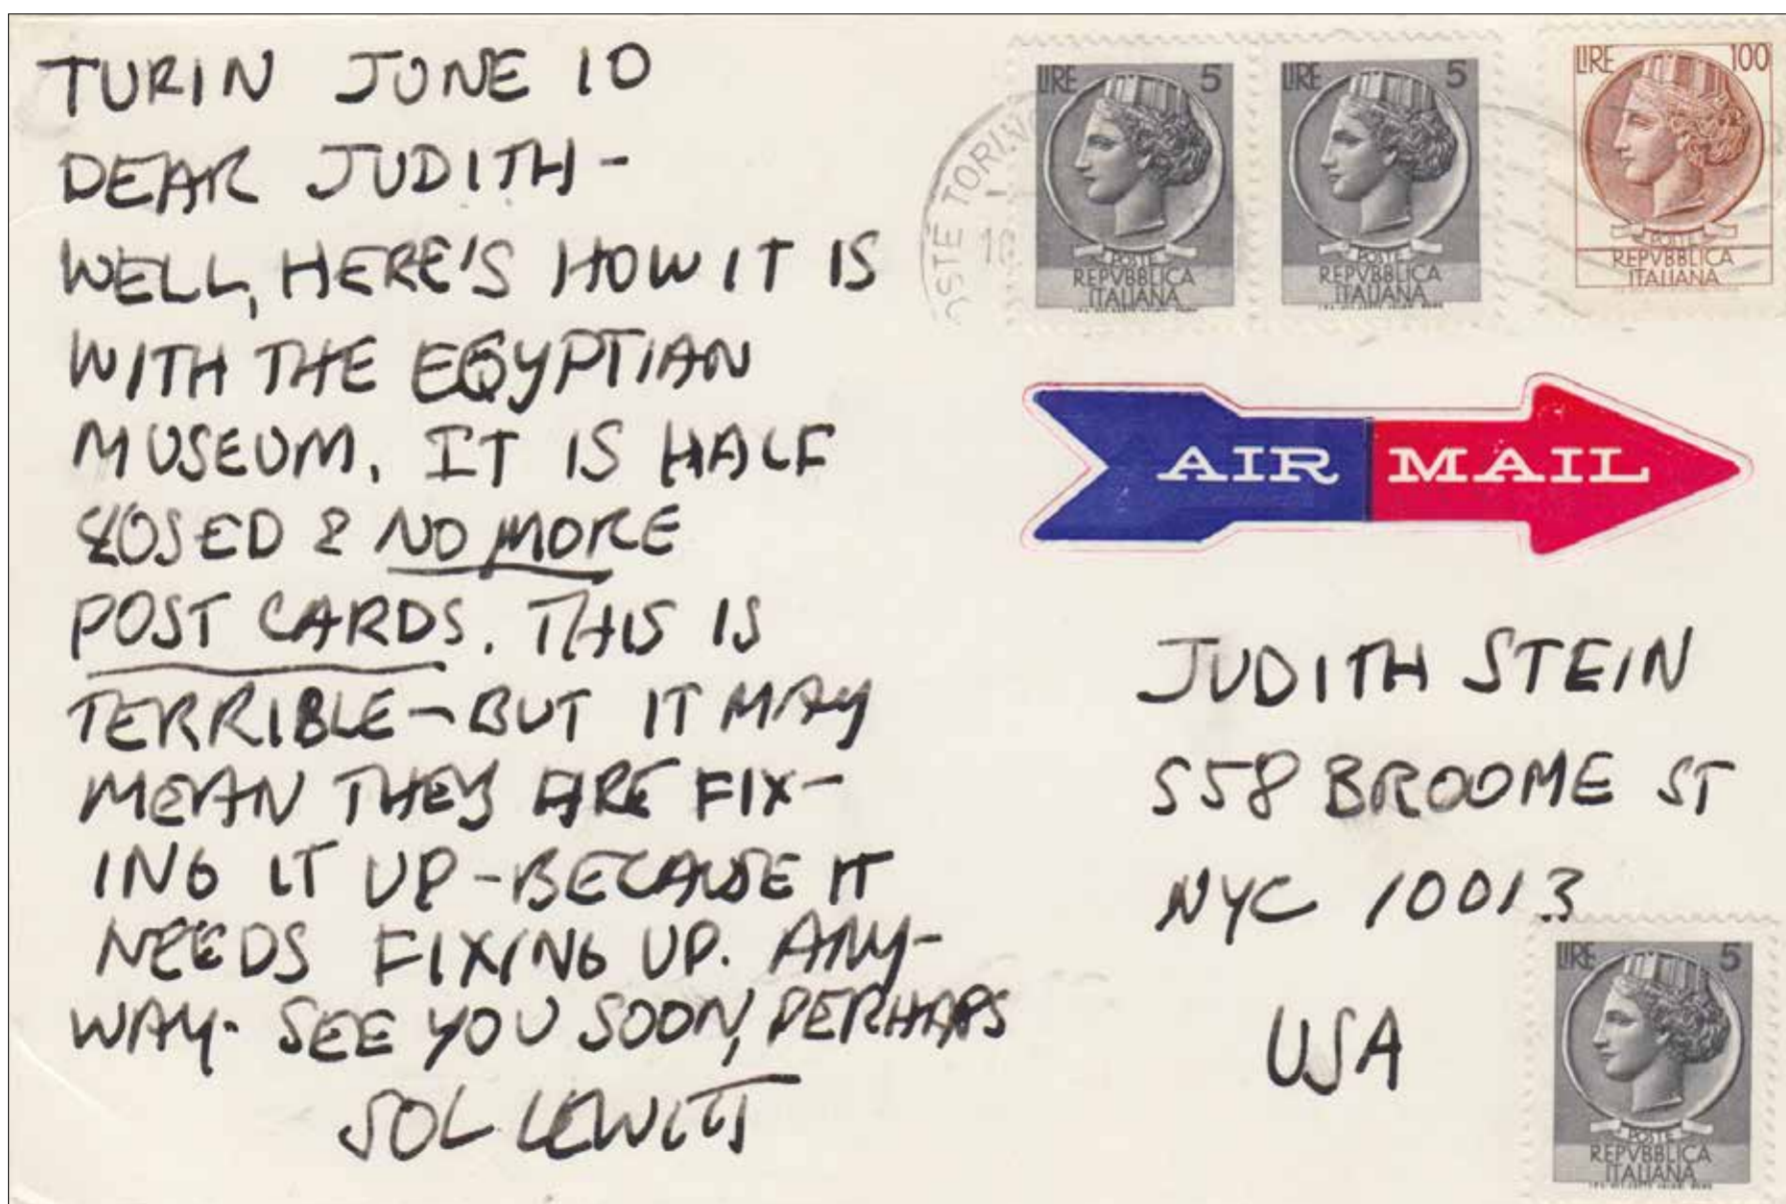 TURIN JUNE 10
DEAR JUDITH-
WELL, HERE'S HOW IT IS
WITH THE EGYPTIAN
MUSEUM. IT IS HALF
CLOSED & NO MORE
POST CARDS. THIS IS
TERRIBLE-BUT IT MAY
MEAN THEY ARE FIX-
ING IT UP-BECAUSE IT
NEEDS FIXING UP. ANY-
WAY- SEE YOU SOON, PERHAPS
SOL LEWITT
LIRE 5
POSTE
REPVBBLICA
ITALIANA
LIRE 5
POSTE
REPVBBLICA
ITALIANA
LIRE 100
POSTE
REPVBBLICA
ITALIANA
AIR MAIL
JUDITH STEIN
558 BROOME ST
NYC 10013
USA
LIRE 5
POSTE
REPVBBLICA
ITALIANA